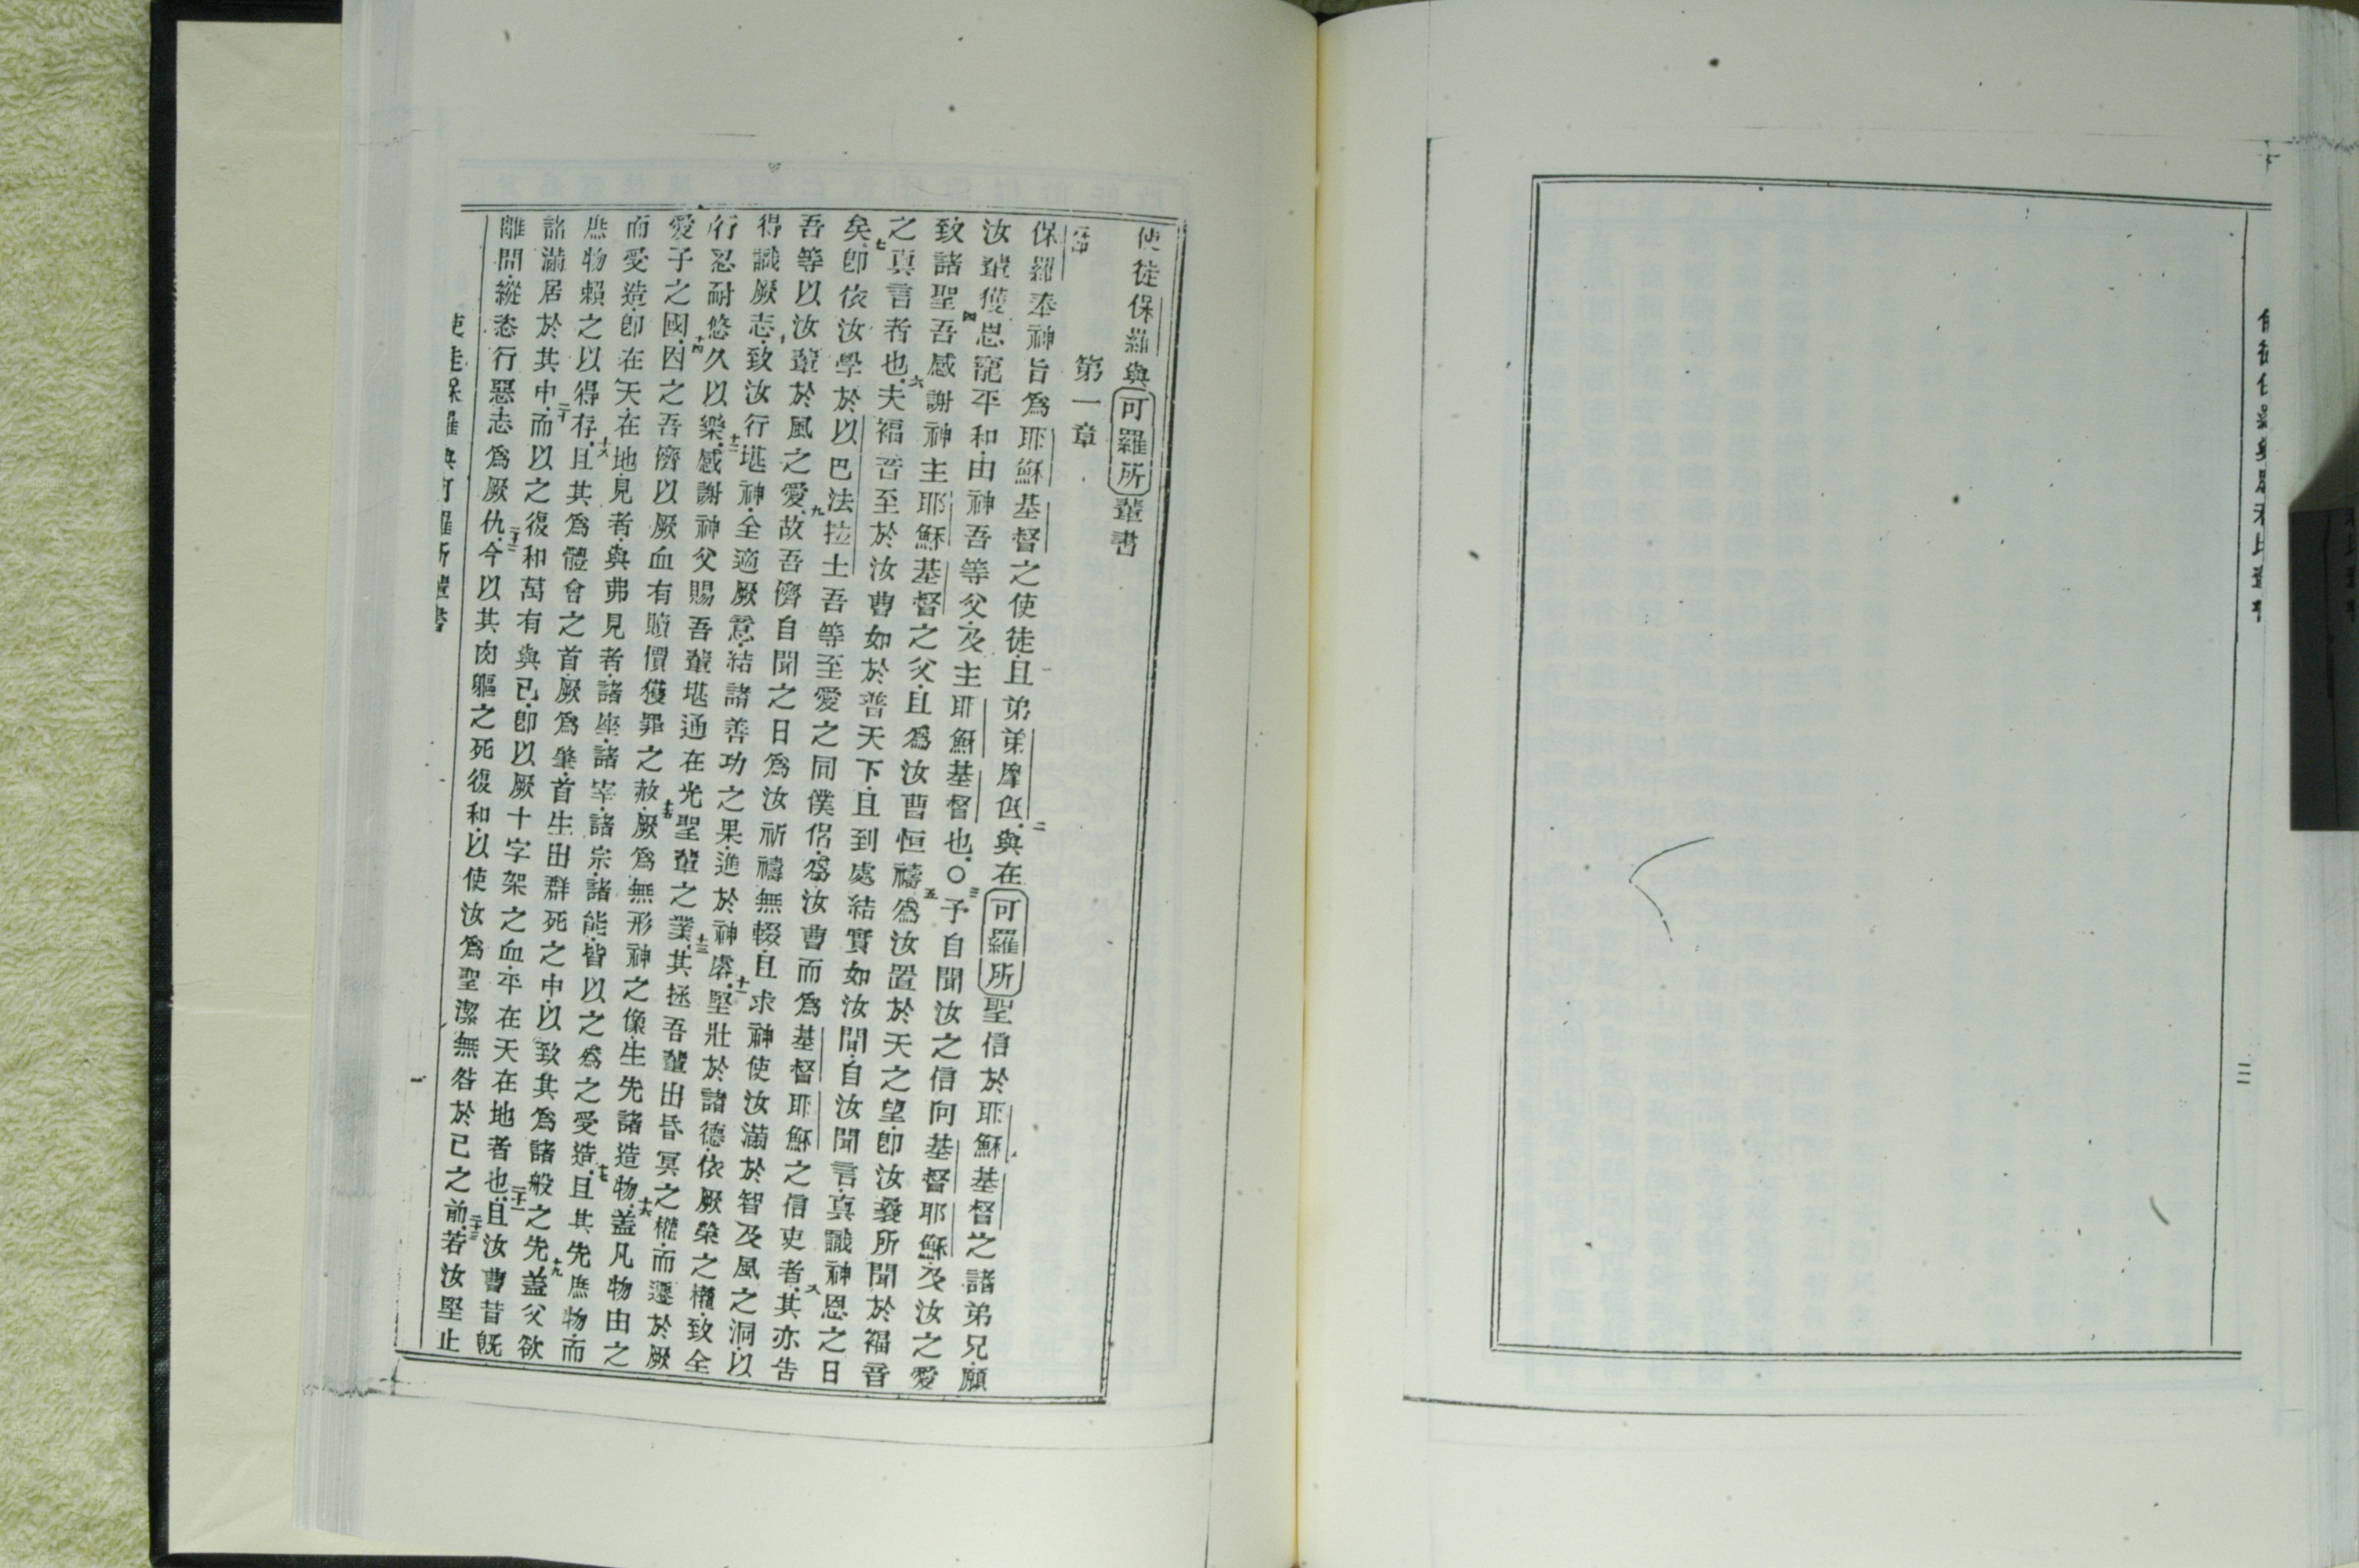 使徒保羅與可羅所輩書
第一章
一節
保羅奉神旨爲耶穌基督之使徒且弟弟摩氐二與在可羅所聖信於耶穌基督之諸弟兄願
汝輩獲恩寵平和由神吾等父及主耶穌基督也○三予自聞汝之信向基督耶穌及汝之愛
致諸聖四吾感謝神主耶穌基督之父且爲汝曹恒禱五爲汝置於天之望卽汝曩所聞於福音
之真言者也六夫福音至於汝曹如於普天下且到處結實如汝聞自汝聞言真識神恩之日
矣七卽依汝學於以巴法拉士吾等至愛之同僕侶爲汝曹而爲基督耶穌之信吏者八其亦告
吾等以汝輩於風之愛九故吾儕自聞之日爲汝祈禱無輟且求神使汝滿於智及風之洞以
得識厥志十致汝行堪神全適厥意結諸善功之果進於神處十一堅壯於諸德依厥榮之權致全
行忍耐悠久以樂十二感謝神父賜吾輩堪通在光聖輩之業十三其拯吾輩出昏冥之權而遷於厥
愛子之國十四因之吾儕以厥血有贖價獲罪之赦十五厥爲無形神之像生先諸造物十六蓋凡物由之
而受造卽在天在地見者與弗見者諸座諸宰諸宗諸能皆以之爲之受造十七且其先庶物而
庶物賴之以得存十八且其爲體會之首厥爲肇首生出群死之中以致其爲諸般之先十九蓋父欲
諸滿居於其中二十而以之復和萬有與己卽以厥十字架之血平在天在地者也二十一且汝曹昔旣
離間縱恣行惡志爲厥仇二十二今以其肉軀之死復和以使汝爲聖潔無咎於己之前二十三若汝堅止
使徒保羅與可羅所輩書
一
三